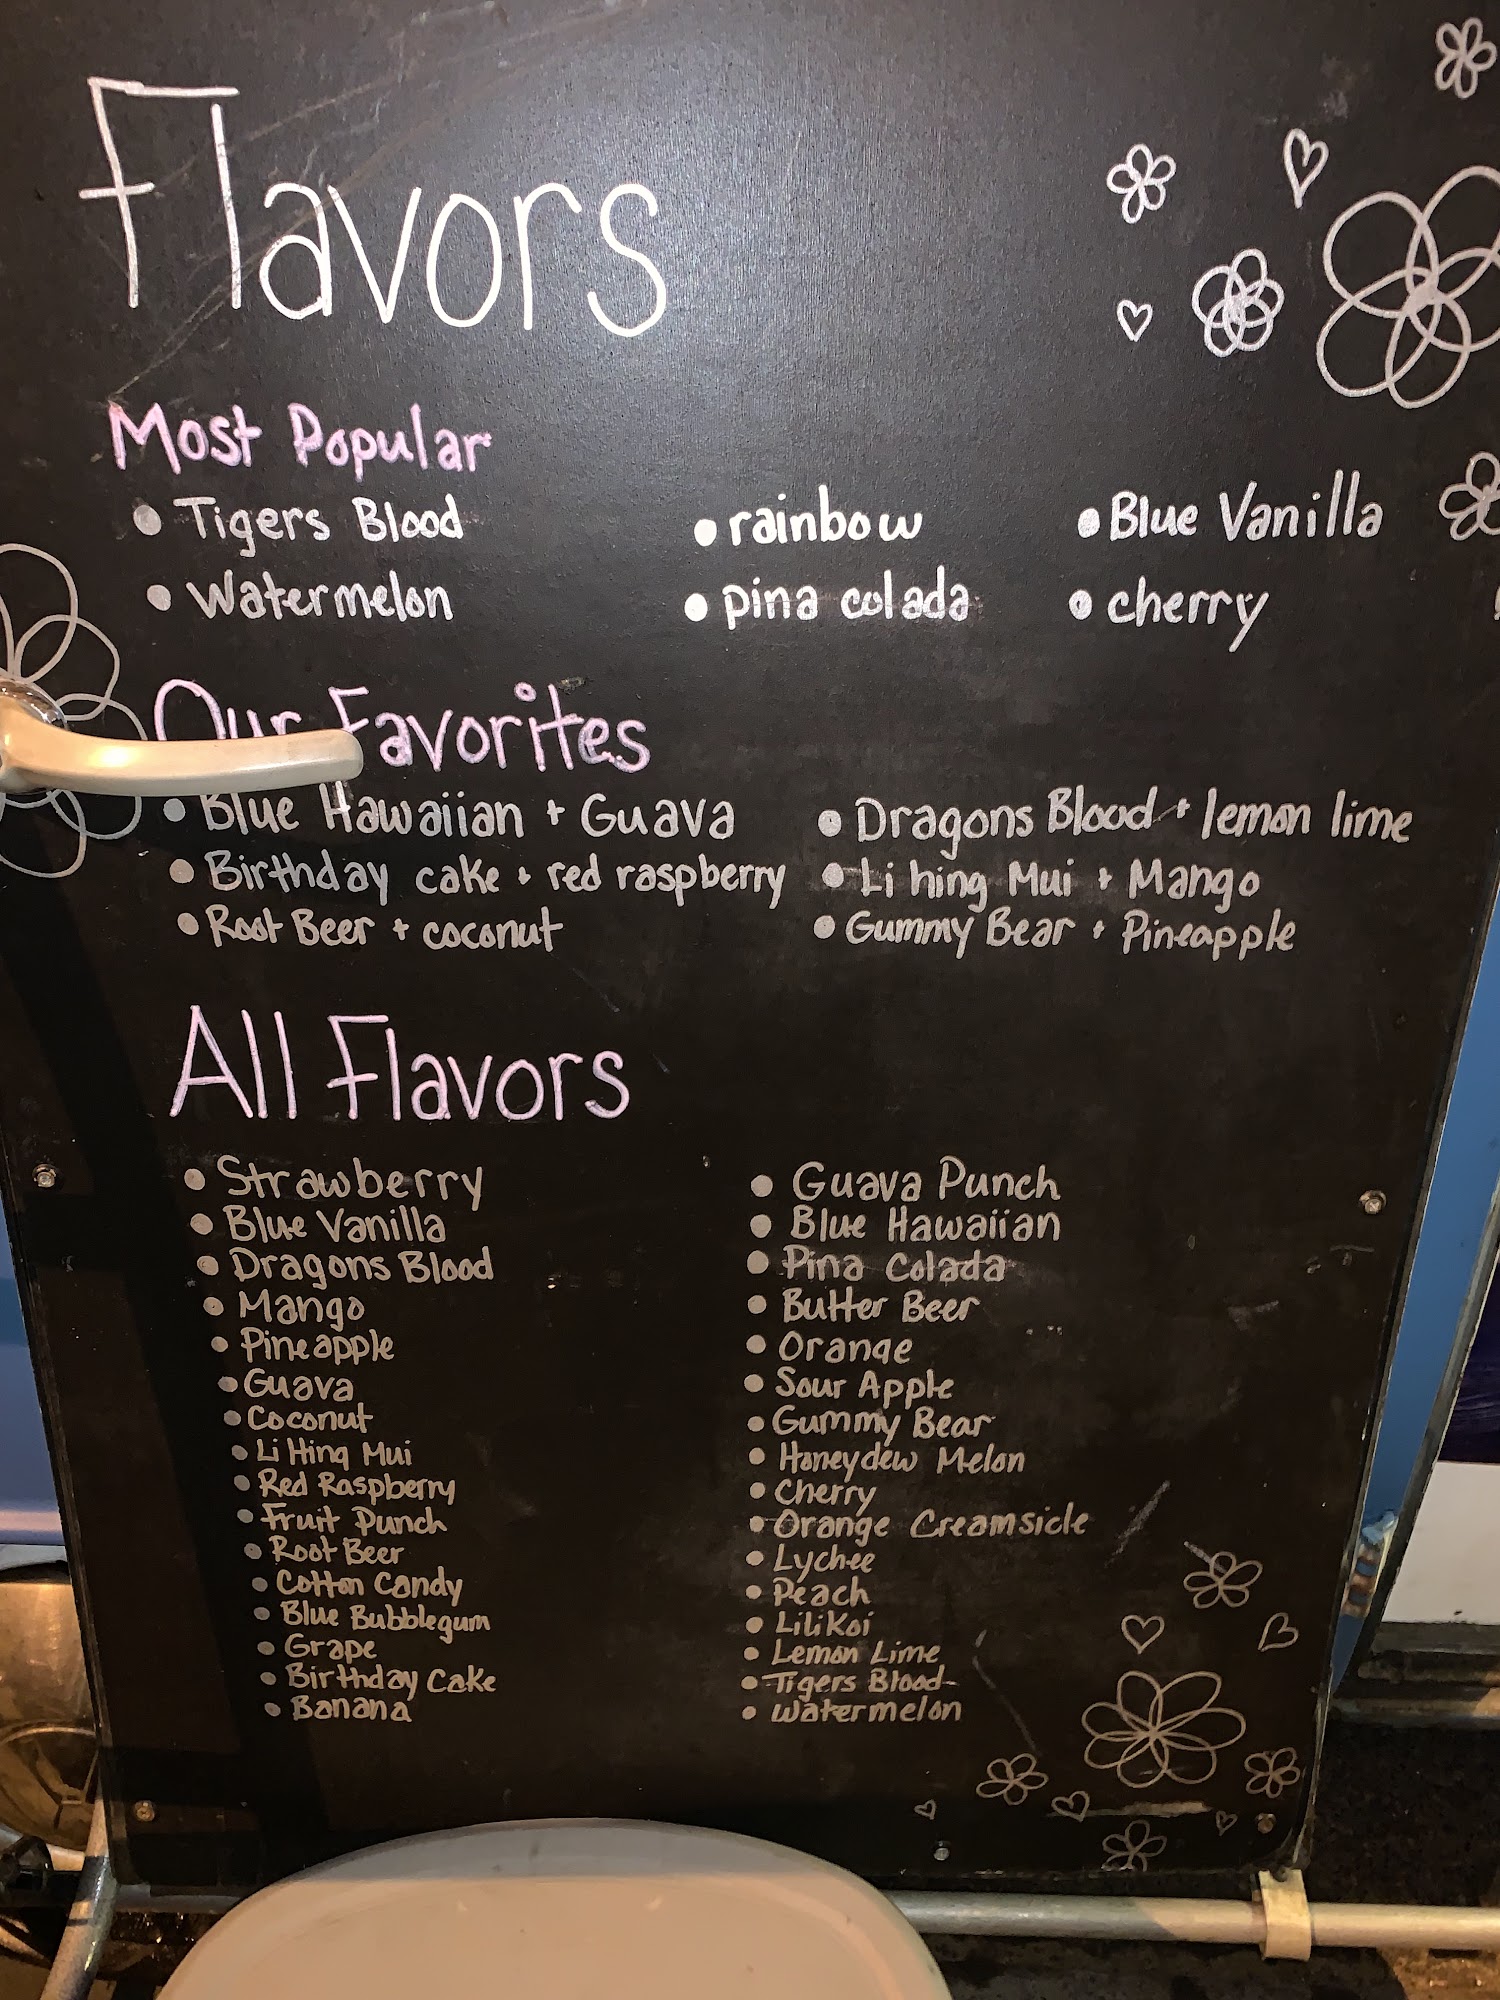 Flavors
Most Popular
• Tigers Blood • rainbow • Blue Vanilla
• Watermelon • pina colada • cherry
Our Favorites
• Blue Hawaiian + Guava • Dragons Blood + lemon lime
• Birthday cake + red raspberry • Li hing Mui + Mango
• Root Beer + coconut • Gummy Bear + Pineapple
All Flavors
• Strawberry
• Blue Vanilla
• Dragons Blood
• Mango
• Pineapple
• Guava
• Coconut
• Li Hing Mui
• Red Raspberry
• Fruit Punch
• Root Beer
• Cotton Candy
• Blue Bubblegum
• Grape
• Birthday Cake
• Banana
• Guava Punch
• Blue Hawaiian
• Pina Colada
• Butter Beer
• Orange
• Sour Apple
• Gummy Bear
• Honeydew Melon
• Cherry
• Orange Creamsicle
• Lychee
• Peach
• LiliKoi
• Lemon Lime
• Tigers Blood
• Watermelon